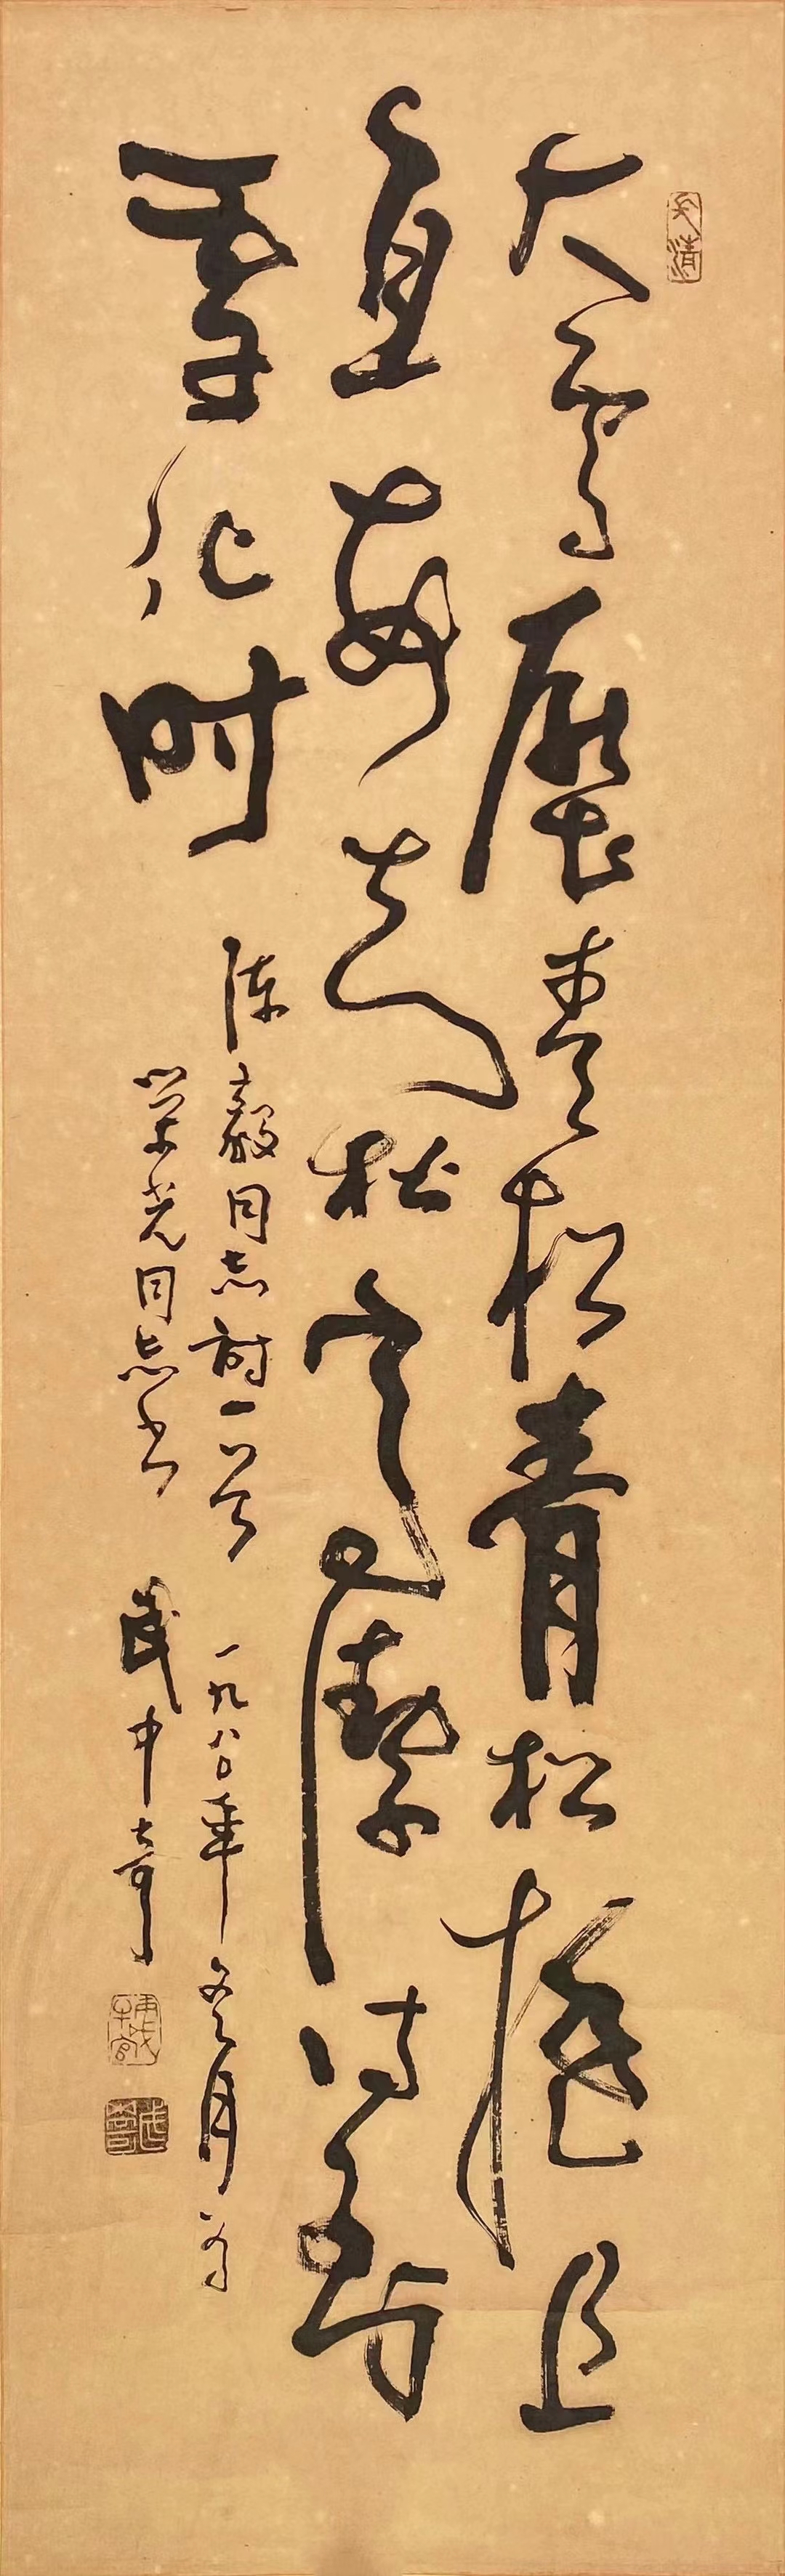 大雪壓青松青松挺且
直要知松高潔待到
雪化时
陈毅同志詩一首 一九八〇年冬月为
荣光同志书 武中奇